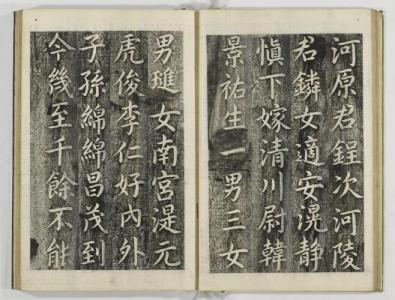 河原君鋥次河陵
君鏻女適安滉静
愼下嫁清川尉韓
景祐生一男三女
男璡女南宮湜元
虎俊李仁好內外
子孫綿綿昌茂到
今幾至千餘不能